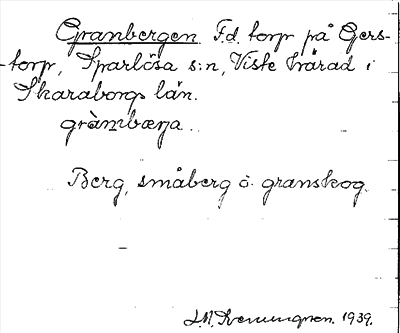 Granbergen F.d. torp på Gers-
-torp, Sparlösa s:n, Viste härad i
Skaraborgs län.
gràmbærja.
Berg, småberg o. granskog.
1939.